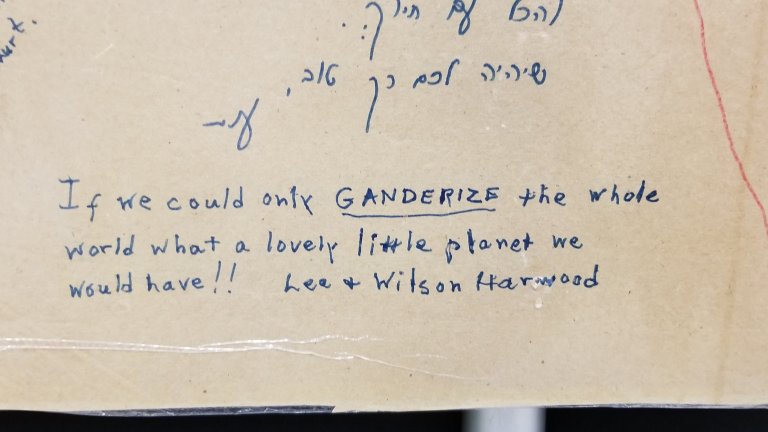 hurt.
עם חיוך
שיהיה לכם רק טוב,
If we could only GANDERIZE the whole
world what a lovely little planet we
would have!! Lee + Wilson Harwood